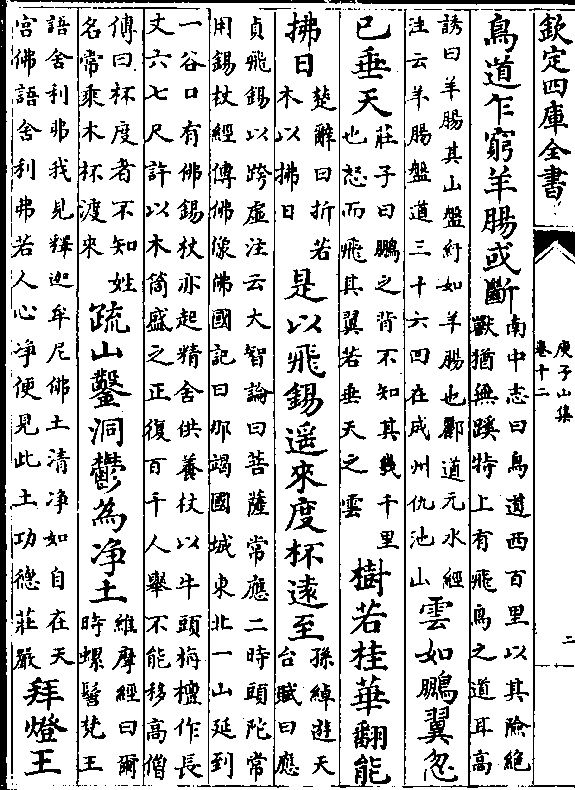 欽定四庫全書
庚子山集
卷十二
二
鳥道乍窮羊腸或斷南中志曰鳥道西百里以其險絶
獸猶無蹊特上有飛鳥之道耳高
誘曰羊腸其山盤紆如羊腸也酈道元水經
注云羊腸盤道三十六回在成州仇池山
雲如鵬翼忽
已垂天莊子曰鵬之背不知其幾千里
也怒而飛其翼若垂天之雲
樹若桂華翻能
拂日楚辭曰折若
木以拂日
是以飛錫遥來度杯遠至孫綽遊天
台賦曰應
貞飛錫以跨虚注云大智論曰菩薩常應二時頭陀常
用錫杖經傳佛像佛國記曰那竭國城東北一山延到
一谷口有佛錫杖亦起精舍供養杖以牛頭栴檀作長
丈六七尺許以木筒盛之正復百千人舉不能移高僧
傳曰杯度者不知姓
名常乘木杯渡來
疏山鑿洞鬱為净土維摩經曰爾
時螺髻梵王
語舍利弗我見釋迦牟尼佛土清净如自在天
宫佛語舍利弗若人心净便見此土功德莊嚴
拜燈王